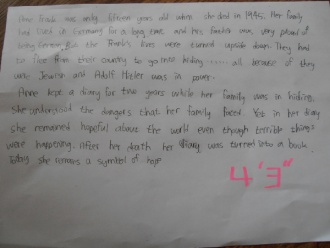 Anne Frank was only fifteen years old when she died in 1945. Her family
had lived in Germany for a long time and her father was very proud of
being German. But the Frank's lives were turned upside down. They had
to flee from their country to go into hiding ...... all because of they
were Jewish and Adolf Hitler was in power.
Anne kept a diary for two years while her family was in hiding.
She understood the dangers that her family faced. Yet in her diary
she remained hopeful about the world even though terrible things
were happening. After her death her diary was turned into a book.
Today she remains a symbol of hope
4'3"